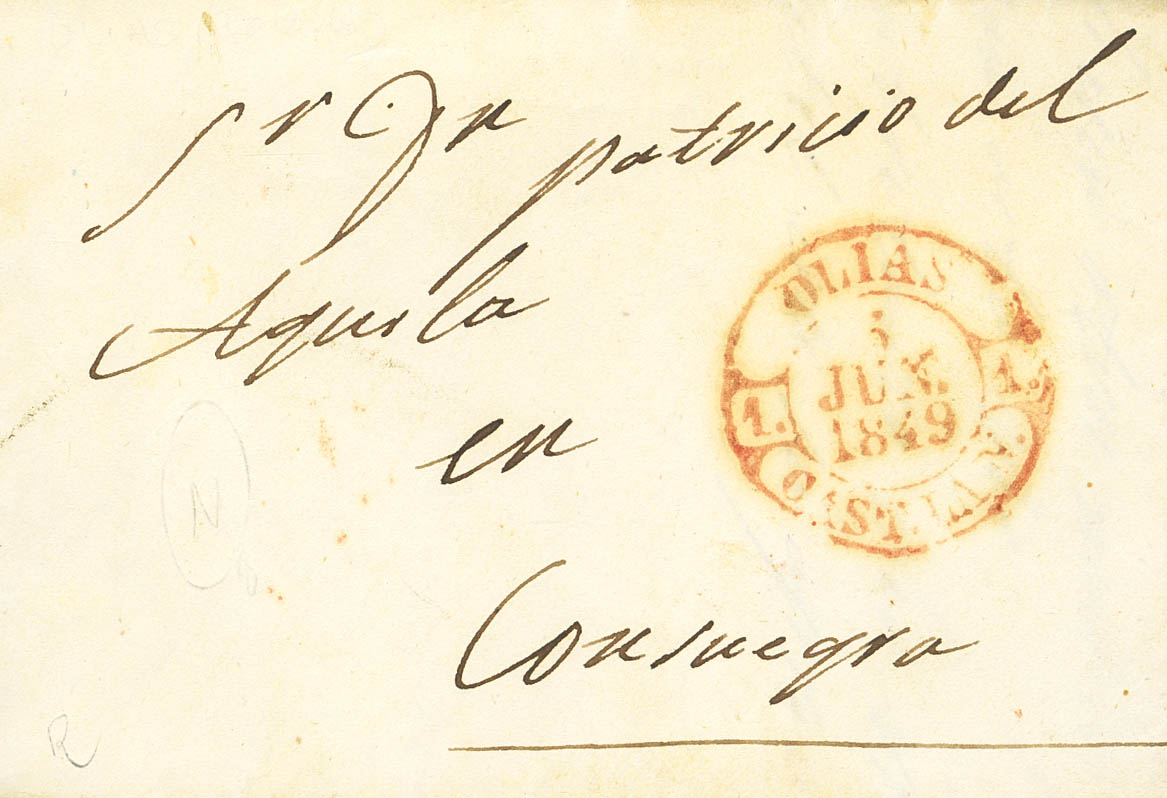 Sr Dn patricio del
Aguila
en
Consuegra
OLIAS
5
JUN.
1849
1.
1.
CAST. LA N.
N
R